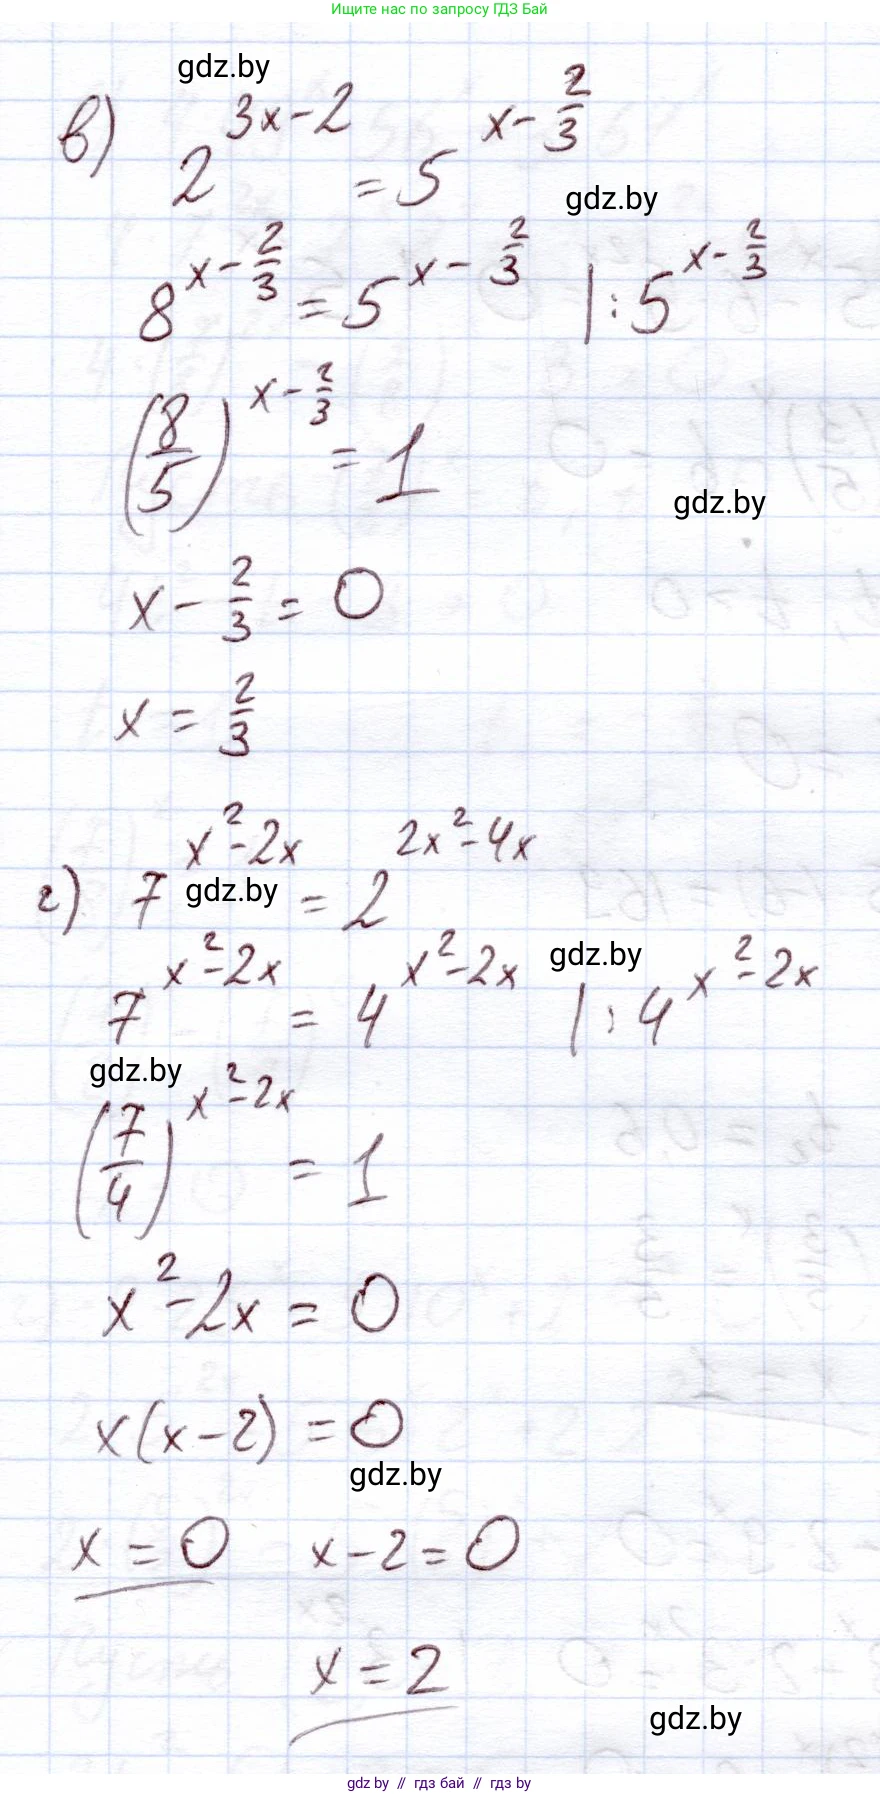 Ищите нас по запросу ГДЗ Бай
gdz.by
в) 2^(3x-2) = 5^(x-2/3)
gdz.by
8^(x-2/3) = 5^(x-2/3) | : 5^(x-2/3)
(8/5)^(x-2/3) = 1
gdz.by
x - 2/3 = 0
x = 2/3
г) 7^(x²-2x) = 2^(2x²-4x)
gdz.by
7^(x²-2x) = 4^(x²-2x) | : 4^(x²-2x)
gdz.by
gdz.by
(7/4)^(x²-2x) = 1
x²-2x = 0
x(x-2) = 0
gdz.by
x = 0 x-2=0
x = 2
gdz.by
gdz.by // гдз бай // гдз by